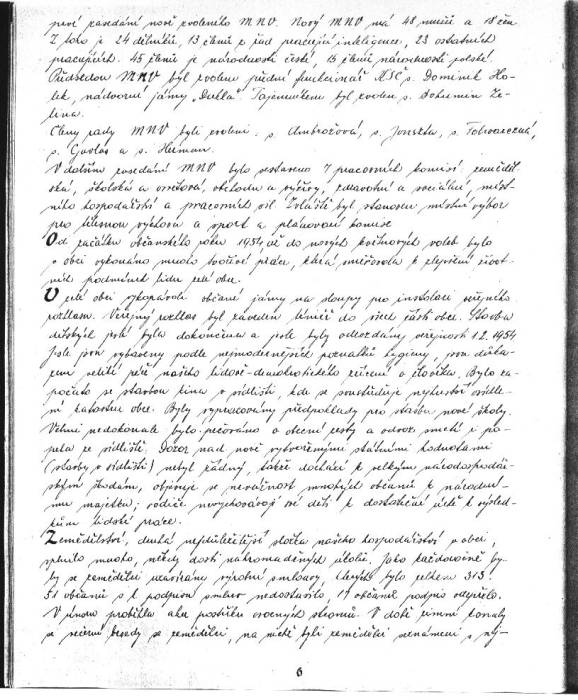 první zasedání nově zvoleného MNV. Nový MNV má 48 mužů a 18 žen
Z toho je 24 dělníků, 13 členů z řad pracující inteligence, 23 ostatních
pracujících. 45 členů je národnosti české, 15 členů národnosti polské.
Předsedou MNV byl zvolen přední funkcionář KSČ s. Dominik Ho-
lek, nádvorní jámy „Dukla". Tajemníkem byl zvolen s. Bohumín Ze-
lina.
Členy rady MNV byli zvoleni: s. Ambrožová, s. Jonszta, s.
s. Gavlas a s. Heiman.
V dalším zasedání MNV bylo sestaveno 7 pracovních komisí: zeměděl-
ská, školská a osvětová, obchodu a výživy, zdravotní a sociální, míst-
ního hospodářství a pracovních sil. Zvláště byl stanoven místní výbor
pro tělesnou výchovu a sport a plánovací komise
Od začátku občanského roku 1954 až do nových květnových voleb bylo
v obci vykonáno mnoho tvořivé práce, která směřovala k zlepšení život-
ních podmínek lidu celé obce.
V celé obci vykopávali občané jámy na sloupy pro instalaci veřejného
rozhlasu. Veřejný rozhlas byl zaveden téměř do všech částí obce. Stavba
dětských jeslí byla dokončena a jesle byly odevzdány veřejnosti 1.2.1954
Jesle jsou vybaveny podle nejmodernějších poznatků hygieny, jsou důka-
zem veliké péče našeho lidově-demokratického zřízení o člověka. Bylo za-
počato se stavbou kina v sídlišti, kde se soustřeďuje nejhustší osídle-
ní katastru obce. Byly vypracovány předpoklady pro stavbu nové školy.
Velmi nedokonale bylo pečováno o obecní cesty a odvoz smetí i po-
pela ze sídliště. Dozor nad nově vytvořenými státními hodnotami
(stavby v sídlišti) nebyl žádný, takže dochází k velkým národohospodář-
ským škodám, objevuje se nevážnost mnohých občanů k národní-
mu majetku; rodiče nevychovávají své děti k dostatečné úctě k výsled-
kům lidské práce.
Zemědělství, druhá nejdůležitější složka našeho hospodářství v obci,
splnilo mnoho, někdy dosti nahromaděných úkolů. Jako každoročně by-
ly se zemědělci uzavírány výrobní smlouvy, kterých bylo celkem 313.
51 občanů se k podpisu smluv nedostavilo, 17 občanů podpis odepřelo.
V únoru proběhla akce postřiku ovocných stromů. V době zimní konaly
se večerní besedy se zemědělci, na nichž byli zemědělci seznámeni s nej-
6